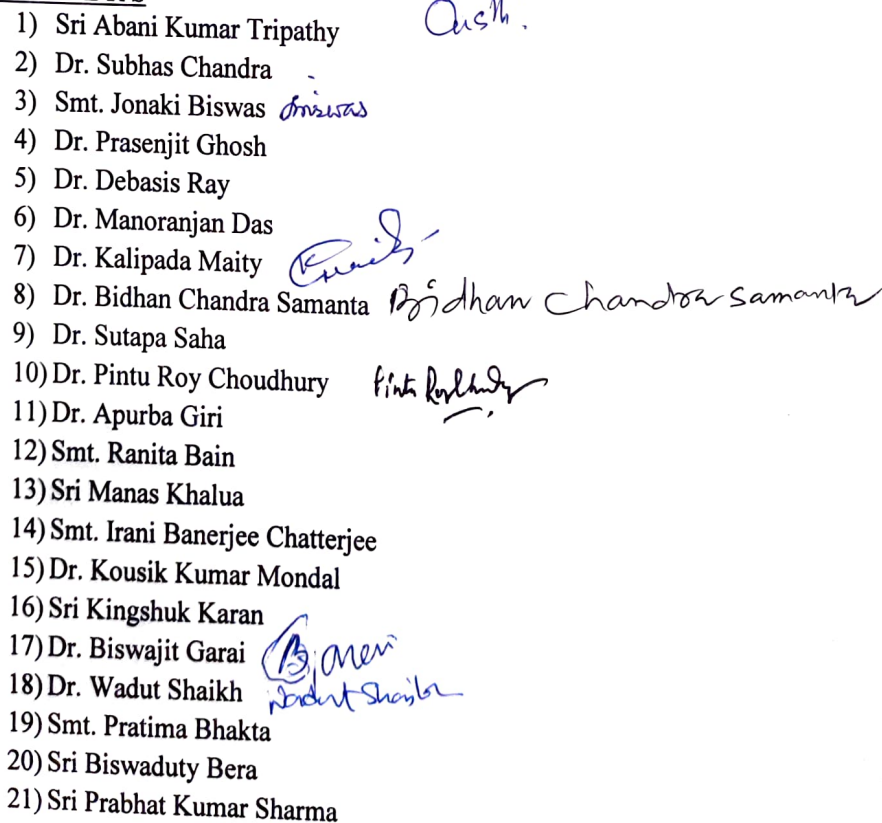 1) Sri Abani Kumar Tripathy
2) Dr. Subhas Chandra
3) Smt. Jonaki Biswas
4) Dr. Prasenjit Ghosh
5) Dr. Debasis Ray
6) Dr. Manoranjan Das
7) Dr. Kalipada Maity
8) Dr. Bidhan Chandra Samanta Bidhan Chandra Samanta
9) Dr. Sutapa Saha
10) Dr. Pintu Roy Choudhury
11) Dr. Apurba Giri
12) Smt. Ranita Bain
13) Sri Manas Khalua
14) Smt. Irani Banerjee Chatterjee
15) Dr. Kousik Kumar Mondal
16) Sri Kingshuk Karan
17) Dr. Biswajit Garai
18) Dr. Wadut Shaikh Wadut Shaikh
19) Smt. Pratima Bhakta
20) Sri Biswaduty Bera
21) Sri Prabhat Kumar Sharma